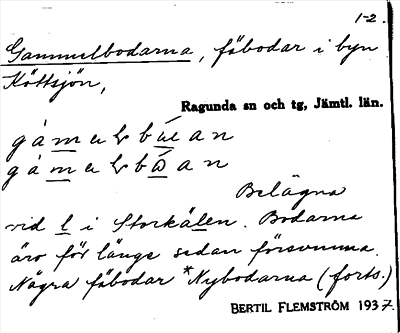 1-2.
Gammelbodarna, fäbodar i byn
Köttsjön,
Ragunda sn och tg, Jämtl. län.
Belägna
vid l i Storkälen. Bodarna
äro för länge sedan försvunna.
Några fäbodar *Nybodarna (forts.)
BERTIL FLEMSTRÖM 1937.